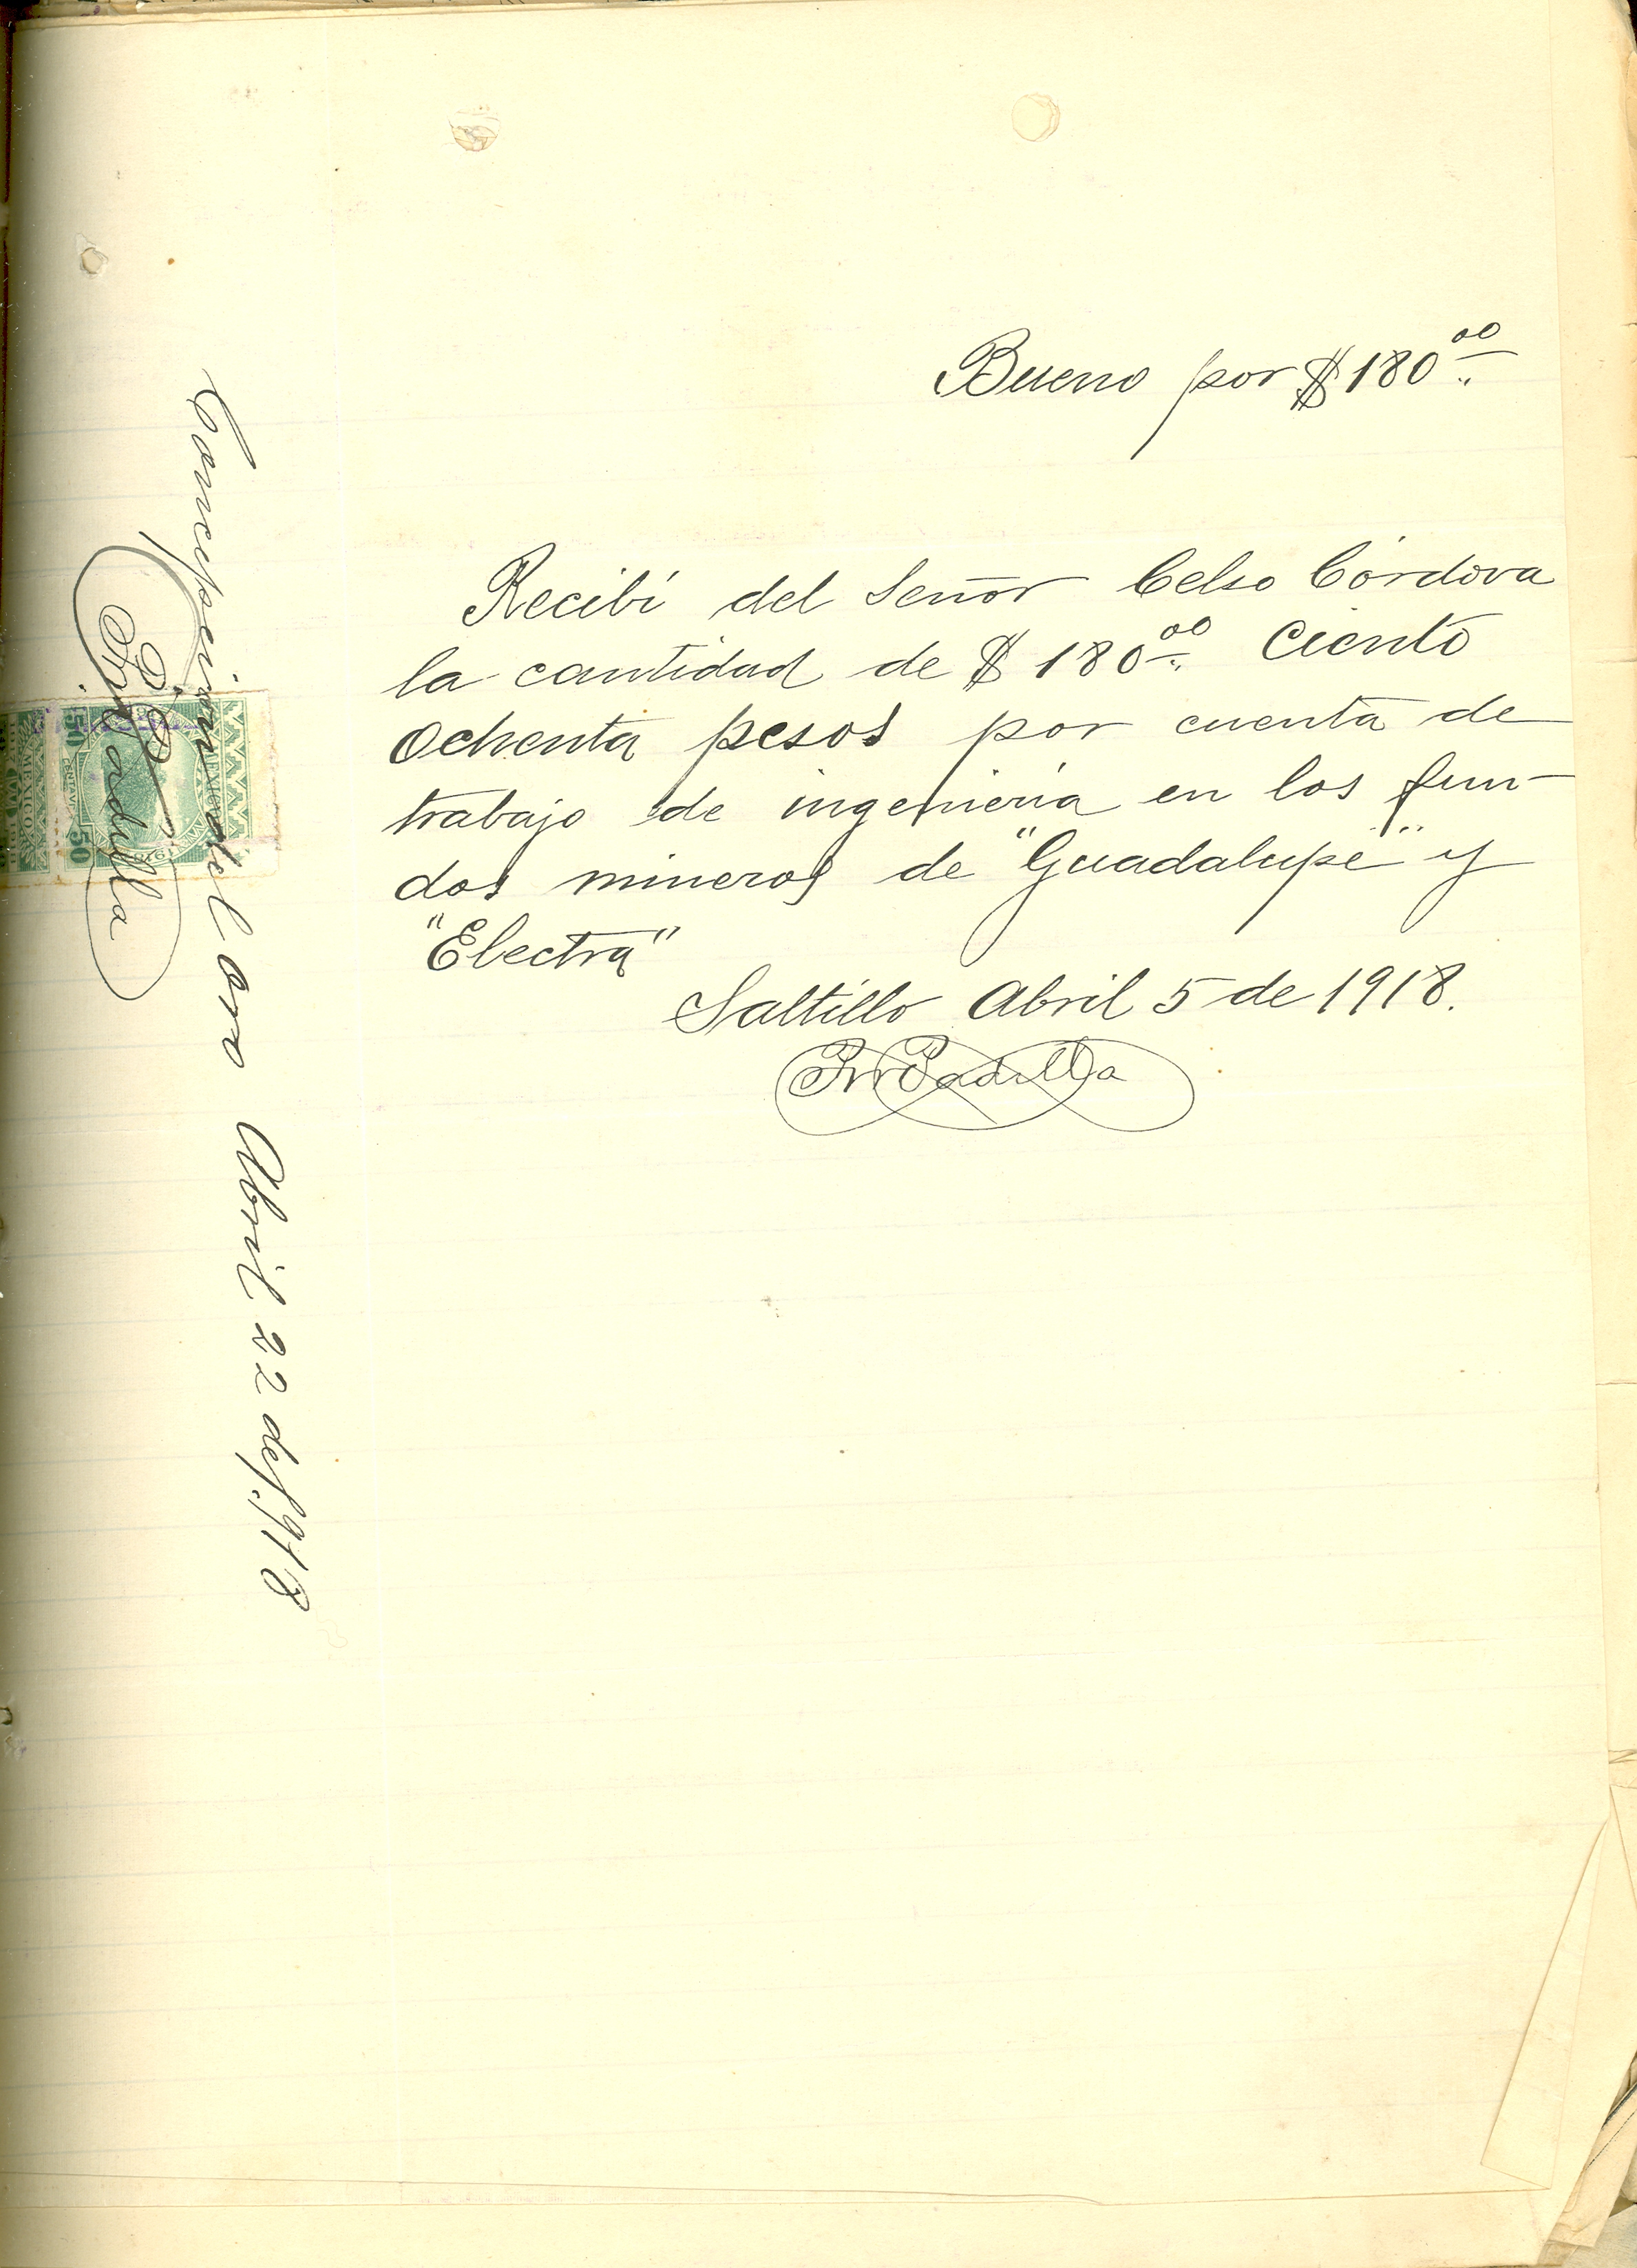 Bueno por $180.00
Recibí del Señor Celso Córdova
la cantidad de $ 180.00 Ciento
Ochenta pesos por cuenta de
trabajo de ingenieria en los fun-
dos mineros de "Guadalupe" y
"Electra"
Saltillo Abril 5 de 1918.
Padilla
Concepcion del oro Abril 22 de 1,918
Padilla
50
CENTAVOS
50
MEXICO